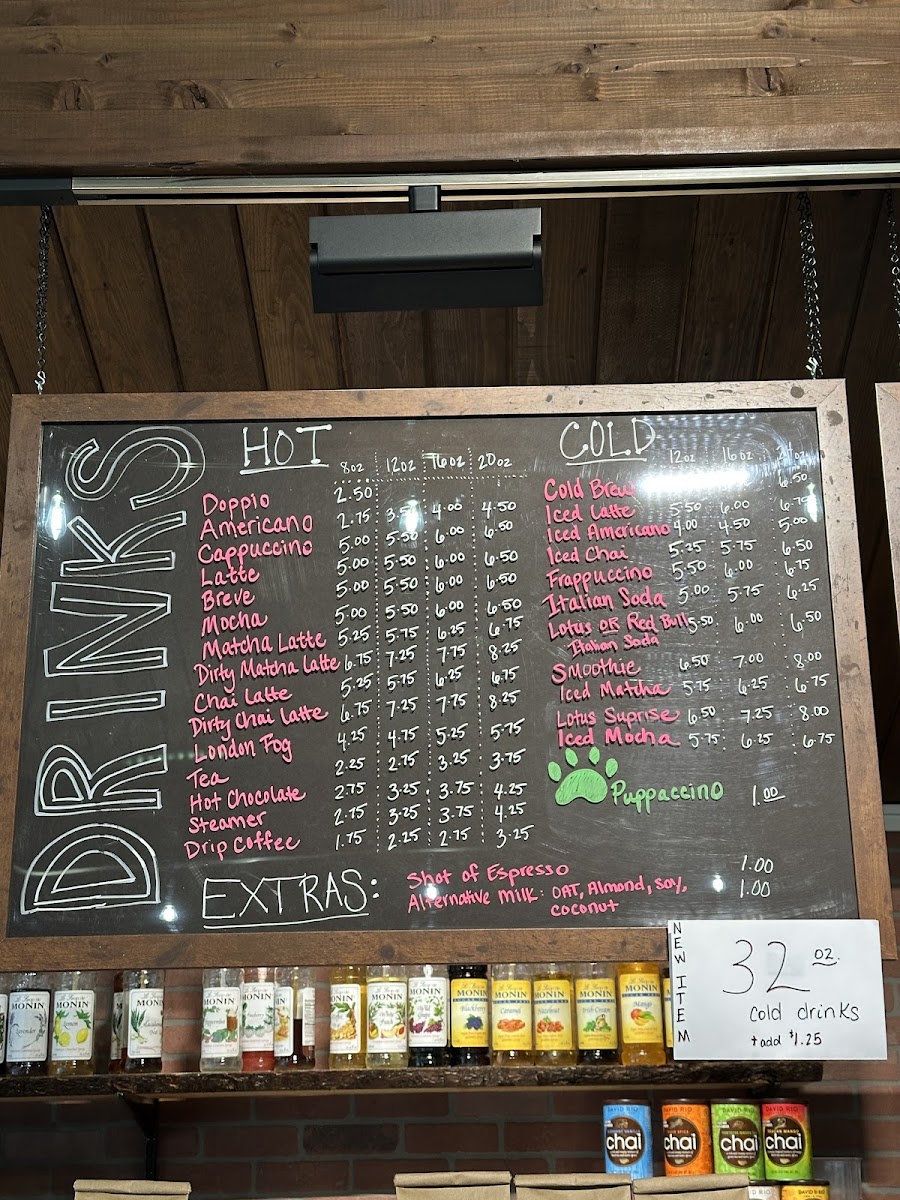 DRINKS
HOT
8oz 12oz 16oz 20oz
Doppio 2.50
Americano 2.75 4.00 4.50
Cappuccino 5.00 5.50 6.00 6.50
Latte 5.00 5.50 6.00 6.50
Breve 5.00 5.50 6.00 6.50
Mocha 5.00 5.50 6.00 6.50
Matcha Latte 5.25 5.75 6.25 6.75
Dirty Matcha Latte 6.75 7.25 7.75 8.25
Chai Latte 5.25 5.75 6.25 6.75
Dirty Chai Latte 6.75 7.25 7.75 8.25
London Fog 4.25 4.75 5.25 5.75
Tea 2.25 2.75 3.25 3.75
Hot Chocolate 2.75 3.25 3.75 4.25
Steamer 2.75 3.25 3.75 4.25
Drip Coffee 1.75 2.25 2.75 3.25
COLD
12oz 16oz
Cold Brew 6.50
Iced Latte 5.50 6.00 6.75
Iced Americano 4.00 4.50 5.00
Iced Chai 5.25 5.75 6.50
Frappuccino 5.50 6.00 6.75
Italian Soda 5.00 5.75 6.25
Lotus OR Red Bull 5.50 6.00 6.50
Italian Soda
Smoothie 6.50 7.00 8.00
Iced Matcha 5.75 6.25 6.75
Lotus Suprise 6.50 7.25 8.00
Iced Mocha 5.75 6.25 6.75
Puppaccino 1.00
EXTRAS:
Shot of Espresso 1.00
Alternative Milk: OAT, Almond, Soy, 1.00
coconut
NEW ITEM
32 oz.
cold drinks
+ add $1.25
MONIN Lavender
MONIN Lemon
MONIN
MONIN
MONIN
MONIN
MONIN
MONIN
MONIN Blackberry
MONIN Caramel
MONIN Hazelnut
MONIN Irish Cream
MONIN Mango
DAVID RIO chai
DAVID RIO chai
DAVID RIO chai
DAVID RIO chai
DAVID RIO